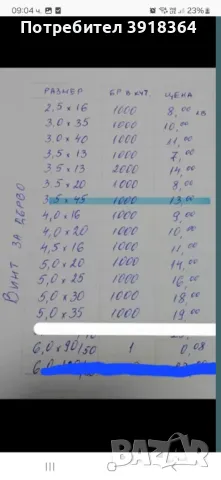 09:04 ч.
23%
Потребител 3918364
РАЗМЕР БР В КУТ. ЦЕНА
2.5 x 16 1000 8,00 лв
3.0 x 35 1000 10,00
3.0 x 40 1000 11,00
3,5 x 13 1000 7,00
3.5 x 13 2000 14,00
3.5 x 20 1000 8,00
3,5 x 45 1000 13,00
4,0 x 16 1000 9,00
4,0 x 20 1000 10,00
4,5 x 16 1000 11,00
5,0 x 20 1000 14,00
5,0 x 25 1000 16,00
5,0 x 30 1000 18,00
5,0 x 35 1000 19,00
6,0 x 90/50 1 0,08
ВИНТ ЗА ДЪРВО
bazar
БАЗАР